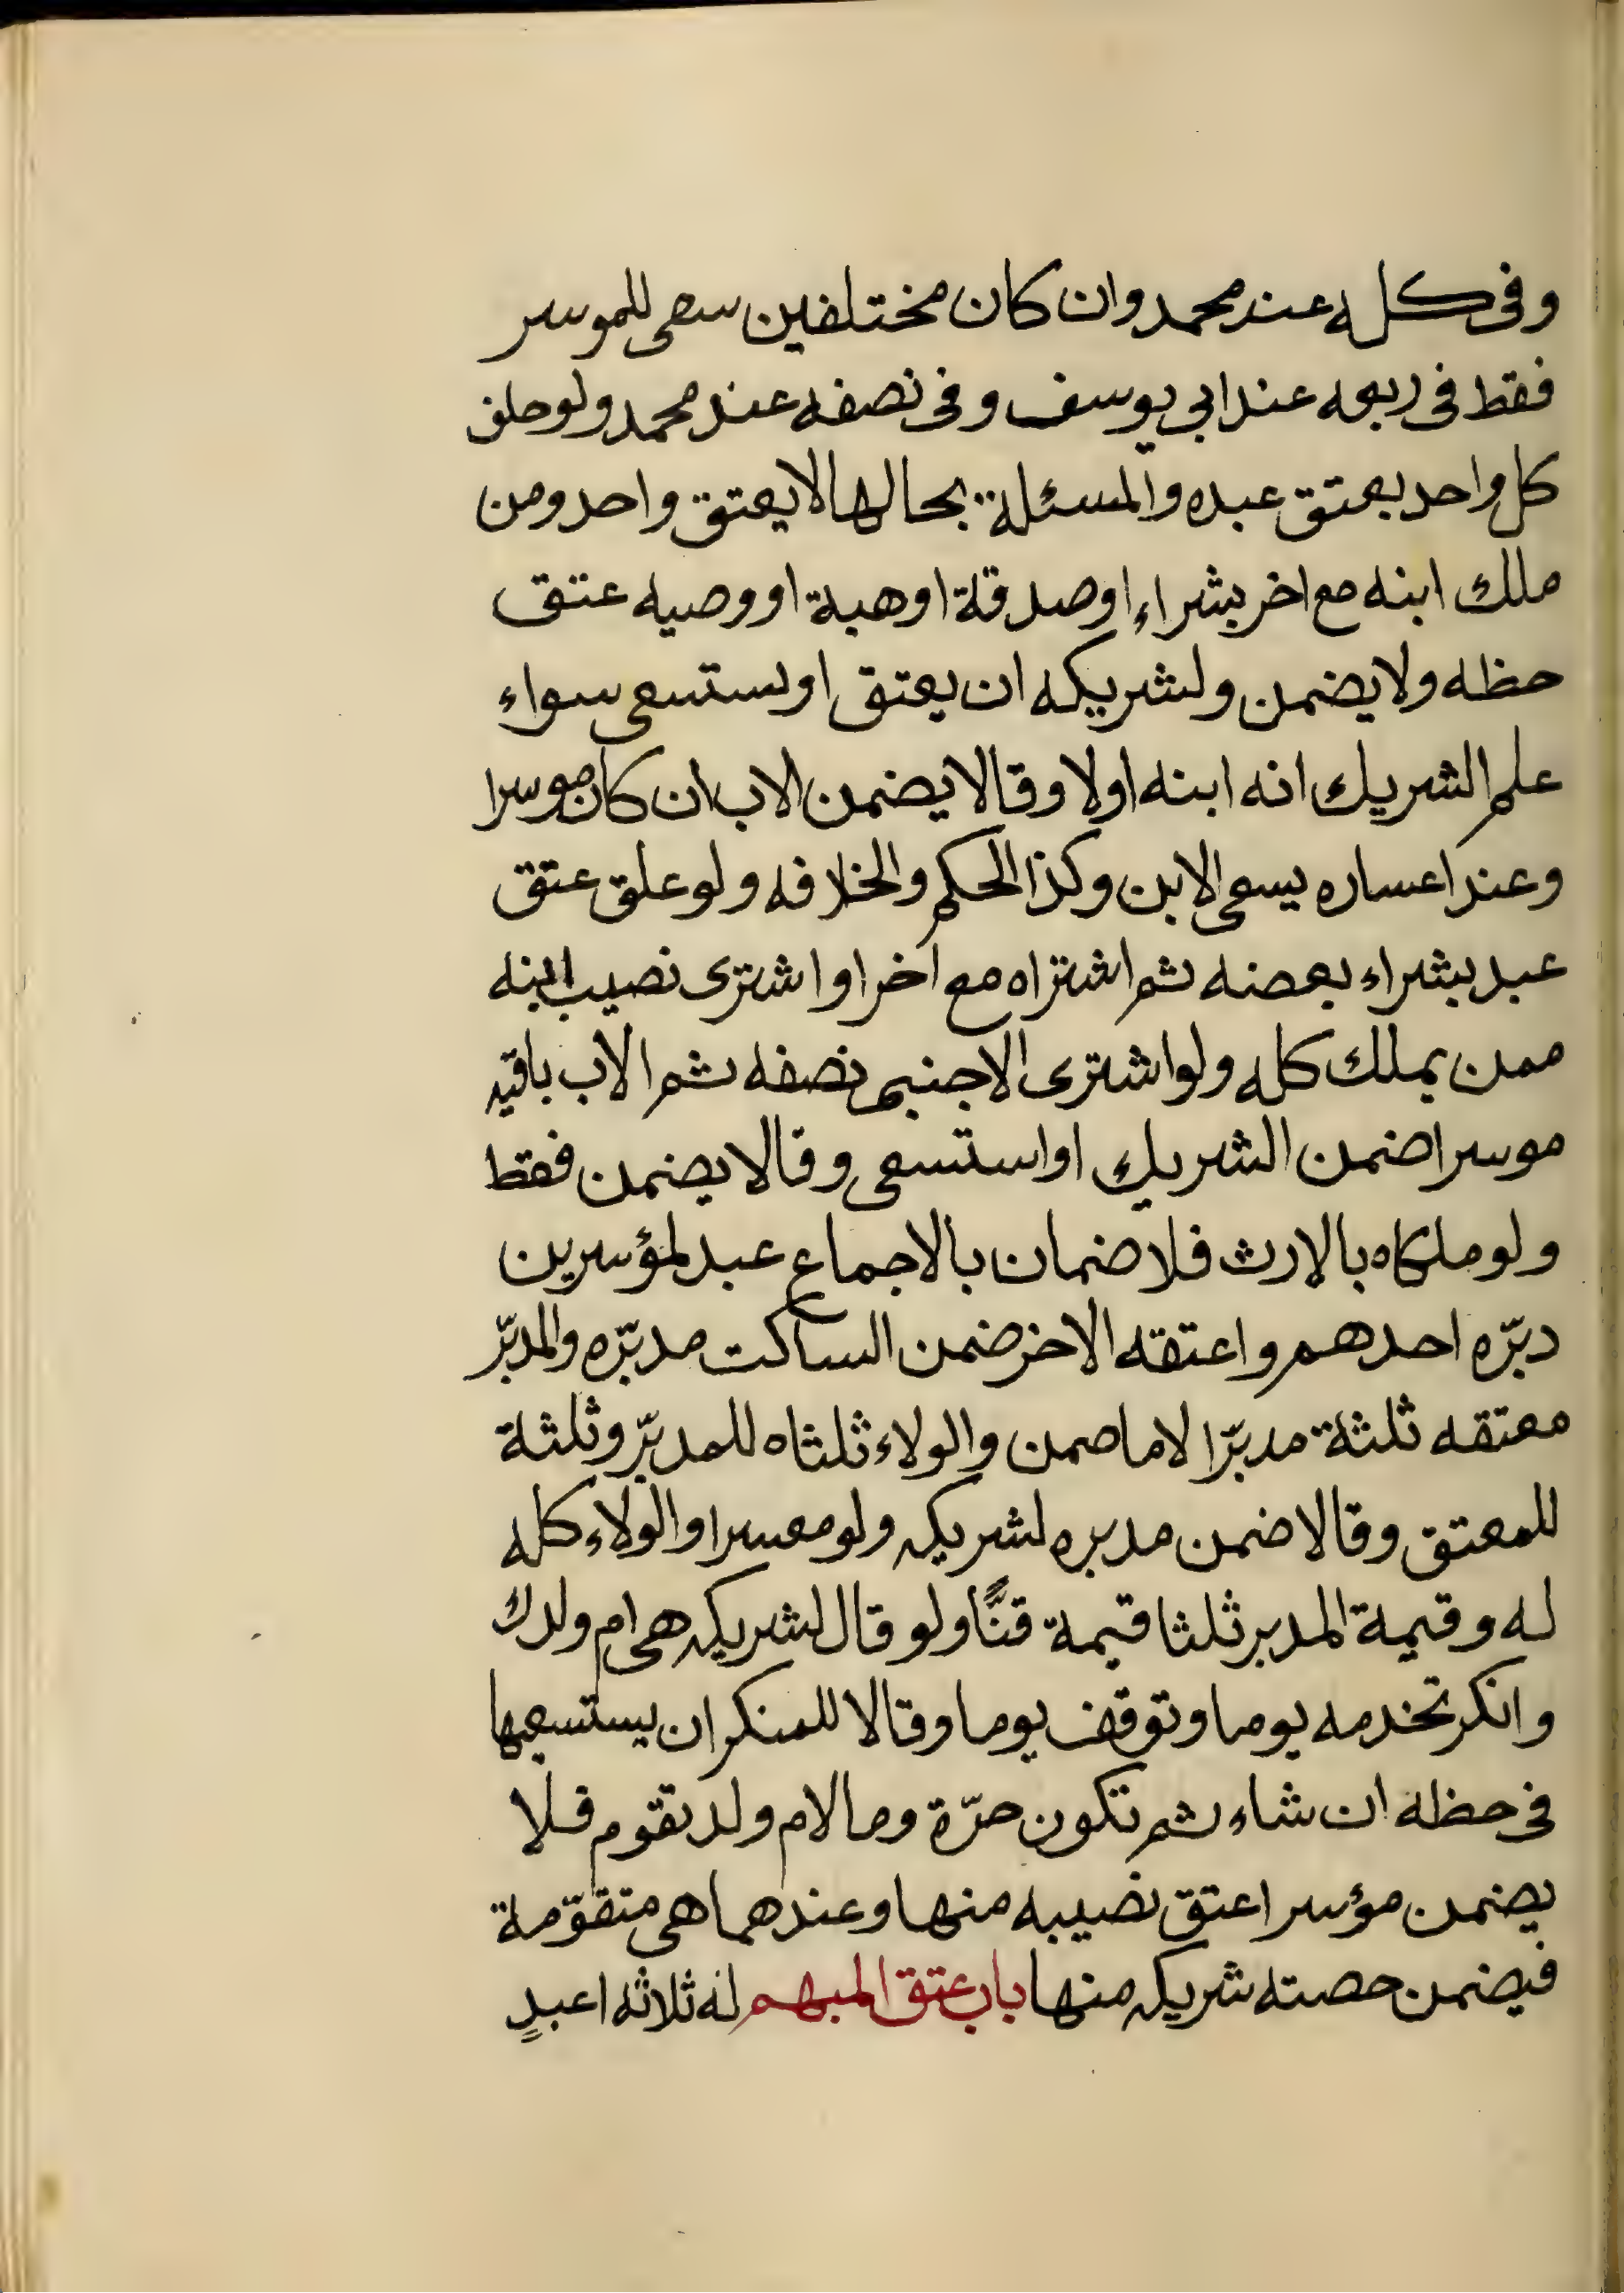 وفى كله عند محمد وان كان مختلفين سعى للموسر
فقط فى ربعه عند ابي يوسف وفى نصفه عند محمد ولو حلف
كل واحد بعتق عبده والمسئلة بحالها لا يعتق واحد ومن
ملك ابنه مع اخر بشراء او صدقة او هبة او وصيه عتق
حظه ولا يضمن ولشريكه ان يعتق او يستسعى سواء
علم الشريك انه ابنه اولا وقالا يضمن الاب ان كان موسرا
وعند اعساره يسعى الابن وكذا الحكم والخلافه ولو علق عتق
عبد بشراء بعضه ثم اشتراه مع اخر او اشترى نصيب ابنه
ممن يملك كله ولو اشترى الاجنبى نصفه ثم الاب باقيه
موسرا ضمن الشريك او استسعى وقالا يضمن فقط
ولو ملكاه بالارث فلا ضمان بالاجماع عبد لمؤسرين
دبّره احدهم واعتقه الاخر ضمن الساكت مدبّره والمدبّر
معتقه ثلثة مدبّرا لا ما ضمن والولاء ثلثاه للمدبّر وثلثة
للمعتق وقالا ضمن مدبره لشريكه ولو معسرا والولاء كله
له وقيمة المدبر ثلثا قيمة قنًّا ولو قال لشريكه هى ام ولدك
وانكر تخدمه يوما وتوقف يوما وقالا للمنكر ان يستسعيها
فى حظه ان شاء ثم تكون حرّة وما لام ولد تقوم فلا
يضمن مؤسر اعتق نصيبه منها وعندهما هى متقوّمة
فيضمن حصته شريكه منها باب عتق المبهم له ثلاثه اعبدٍ